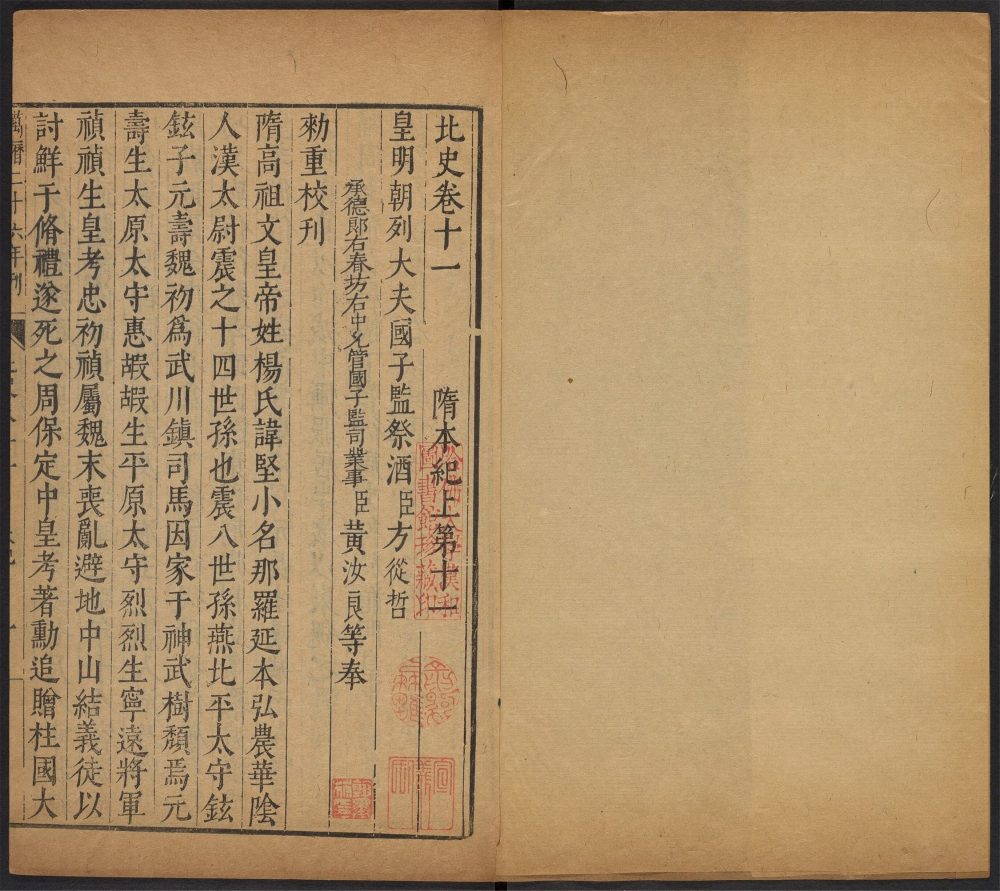 北史卷十一　隋本紀上第十一
皇明朝列大夫國子監祭酒臣方從哲
承德郎右春坊右中允管國子監司業事臣黃汝良等奉
勑重校刊
隋高祖文皇帝姓楊氏諱堅小名那羅延本弘農華陰
人漢太尉震之十四世孫也震八世孫燕北平太守鉉
鉉子元壽魏初爲武川鎮司馬因家于神武樹頹焉元
壽生太原太守惠嘏嘏生平原太守烈烈生寧遠將軍
禎禎生皇考忠初禎屬魏末喪亂避地中山結義徒以
討鮮于脩禮遂死之周保定中皇考著勳追贈柱國大
萬曆二十六年刊
哈佛大學漢和
圖書館珍藏印